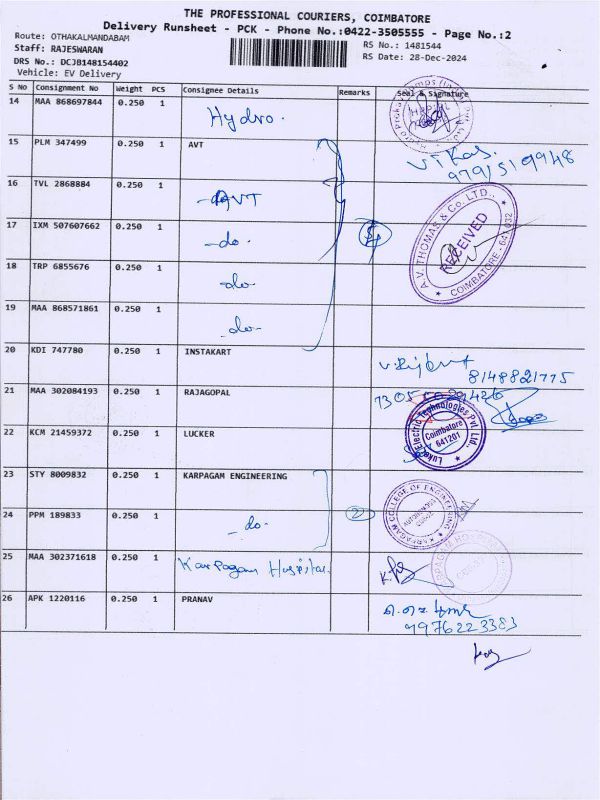 THE PROFESSIONAL COURIERS, COIMBATORE
Delivery Runsheet - PCK - Phone No.:0422-3505555 - Page No.:2
Route: OTHAKALMANDABAM
RS No.: 1481544
Staff: RAJESWARAN
RS Date: 28-Dec-2024
DRS No.: DCJB148154402
Vehicle: EV Delivery
S No Consignment No Weight PCS Consignee Details Remarks Seal & Signature
14 MAA 868697844 0.250 1 Hydro.
15 PLM 347499 0.250 1 AVT
Vikas.
9791519948
16 TVL 2868884 0.250 1 AVT
A.V. THOMAS & Co. LTD.,
RECEIVED
COIMBATORE - 641 032
17 IXM 507607662 0.250 1 -do- 5
18 TRP 6855676 0.250 1 -do-
19 MAA 868571861 0.250 1 -do-
20 KDI 747780 0.250 1 INSTAKART
8148821775
21 MAA 302084193 0.250 1 RAJAGOPAL
22 KCM 21459372 0.250 1 LUCKER
Electric Technologies Pvt Ltd.
Coimbatore
641201
23 STY 8009832 0.250 1 KARPAGAM ENGINEERING
KARPAGAM COLLEGE OF ENGINEERING
24 PPM 189833 0.250 1 -do- 2
25 MAA 302371618 0.250 1 Karpagam Hospital.
26 APK 1220116 0.250 1 PRANAV
9976223383